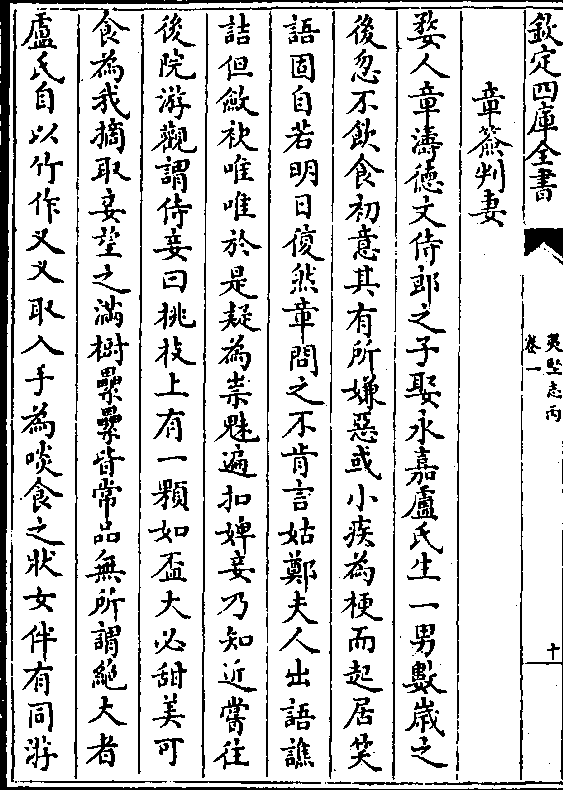 欽定四庫全書
夷堅志丙
卷一
十
章簽判妻
婺人章濤德文侍郎之子娶永嘉盧氏生一男數歲之
後忽不飲食初意其有所嫌惡或小疾為梗而起居笑
語固自若明日復然章問之不肯言姑鄭夫人出語譙
詰但斂衽唯唯於是疑為祟魅遍扣婢妾乃知近嘗往
後院游觀謂侍妾曰桃枝上有一顆如盃大必甜美可
食為我摘取妾望之滿樹纍纍皆常品無所謂絶大者
盧氏自以竹作叉叉取入手為啖食之狀女伴有同游